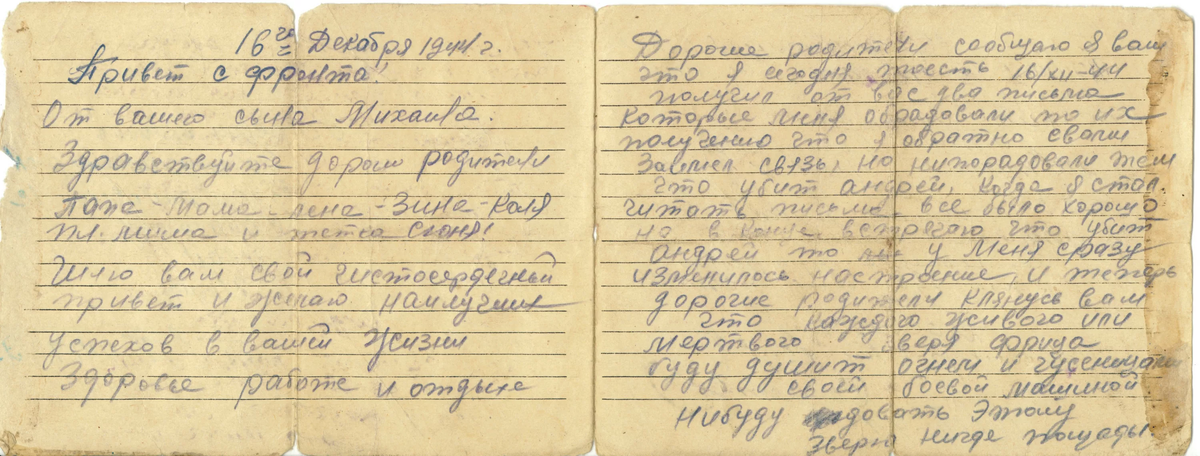 16 го Декабря 1944 г.
Привет с фронта!
От вашего сына Михаила.
Здравствуйте дороги родители
Папа - Мама - лена - Зина - Коля
пл. мима и тетка Сюня!
Шлю вам свой чистосердечный
привет и желаю наилучших
успехов в вашей жизни
Здоровье работе и отдыхе
Дорогие родители сообщаю я вам
что я сегодня тоесть 16/XII-44
получил от вас два письма
Которые меня обрадовали по их
получению что я обратно свами
Заимел связь, но нипорадовали тем
что убит андрей, когда я стал
читать письма все было хорошо
но в конце встречаю что убит
андрей то у меня сразу
изменилось настроение, и теперь
дорогие родители клянусь вам
что каждого живого или
мертвого зверя фрица
буду душит огнем и гусеницами
своей боевой машиной
Нибуду довать Этому
Зверю нигде пощады